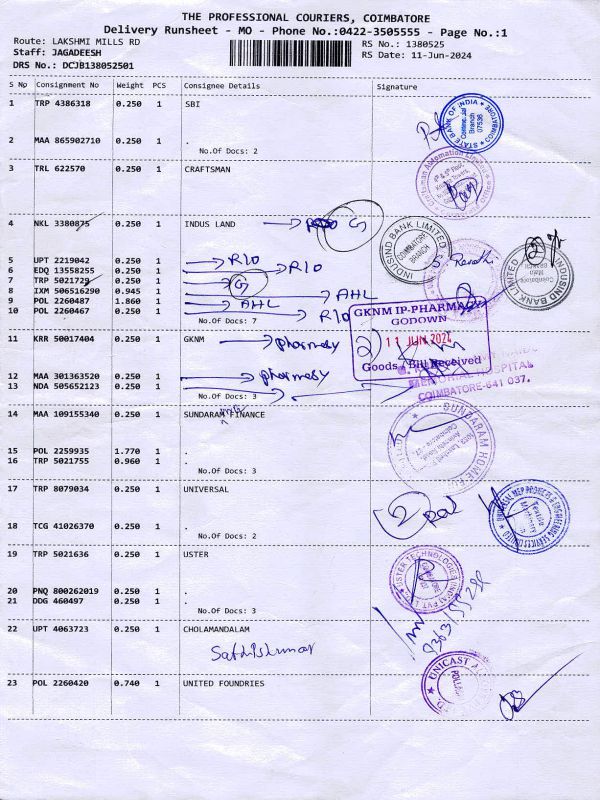 THE PROFESSIONAL COURIERS, COIMBATORE
Delivery Runsheet - MO - Phone No.:0422-3505555 - Page No.:1
Route: LAKSHMI MILLS RD
RS No.: 1380525
Staff: JAGADEESH
RS Date: 11-Jun-2024
DRS No.: DCJB138052501
S No Consignment No Weight PCS Consignee Details Signature
1 TRP 4386318 0.250 1 SBI
STATE BANK OF INDIA Branch 07536
2 MAA 865902710 0.250 1 .
No.Of Docs: 2
3 TRL 622570 0.250 1 CRAFTSMAN
4 NKL 3380875 0.250 1 INDUS LAND G
INDUSIND BANK LIMITED COIMBATORE BRANCH
5 UPT 2219042 0.250 1 R10
6 EDQ 13558255 0.250 1 R10
7 TRP 5021729 0.250 1 G
8 IXM 506516290 0.945 1 AHL
9 POL 2260487 1.860 1 AHL
10 POL 2260467 0.250 1 . R10
No.Of Docs: 7
INDUSIND BANK LIMITED
GKNM IP-PHARMACY
GODOWN
11 JUN 2024
Goods / Bill Received
11 KRR 50017404 0.250 1 GKNM pharmacy
12 MAA 301363520 0.250 1 pharmacy
13 NDA 505652123 0.250 1 .
No.Of Docs: 3
MEMORIAL HOSPITAL
COIMBATORE-641 037.
14 MAA 109155340 0.250 1 SUNDARAM FINANCE
SUNDARAM HOME
15 POL 2259935 1.770 1 .
16 TRP 5021755 0.960 1 .
No.Of Docs: 3
17 TRP 8079034 0.250 1 UNIVERSAL
2
18 TCG 41026370 0.250 1 .
No.Of Docs: 2
19 TRP 5021636 0.250 1 USTER
USTER TECHNOLOGIES
20 PNQ 800262019 0.250 1 .
21 DDG 460497 0.250 1 .
No.Of Docs: 3
22 UPT 4063723 0.250 1 CHOLAMANDALAM
Sathishkumar
UNICAST
23 POL 2260420 0.740 1 UNITED FOUNDRIES